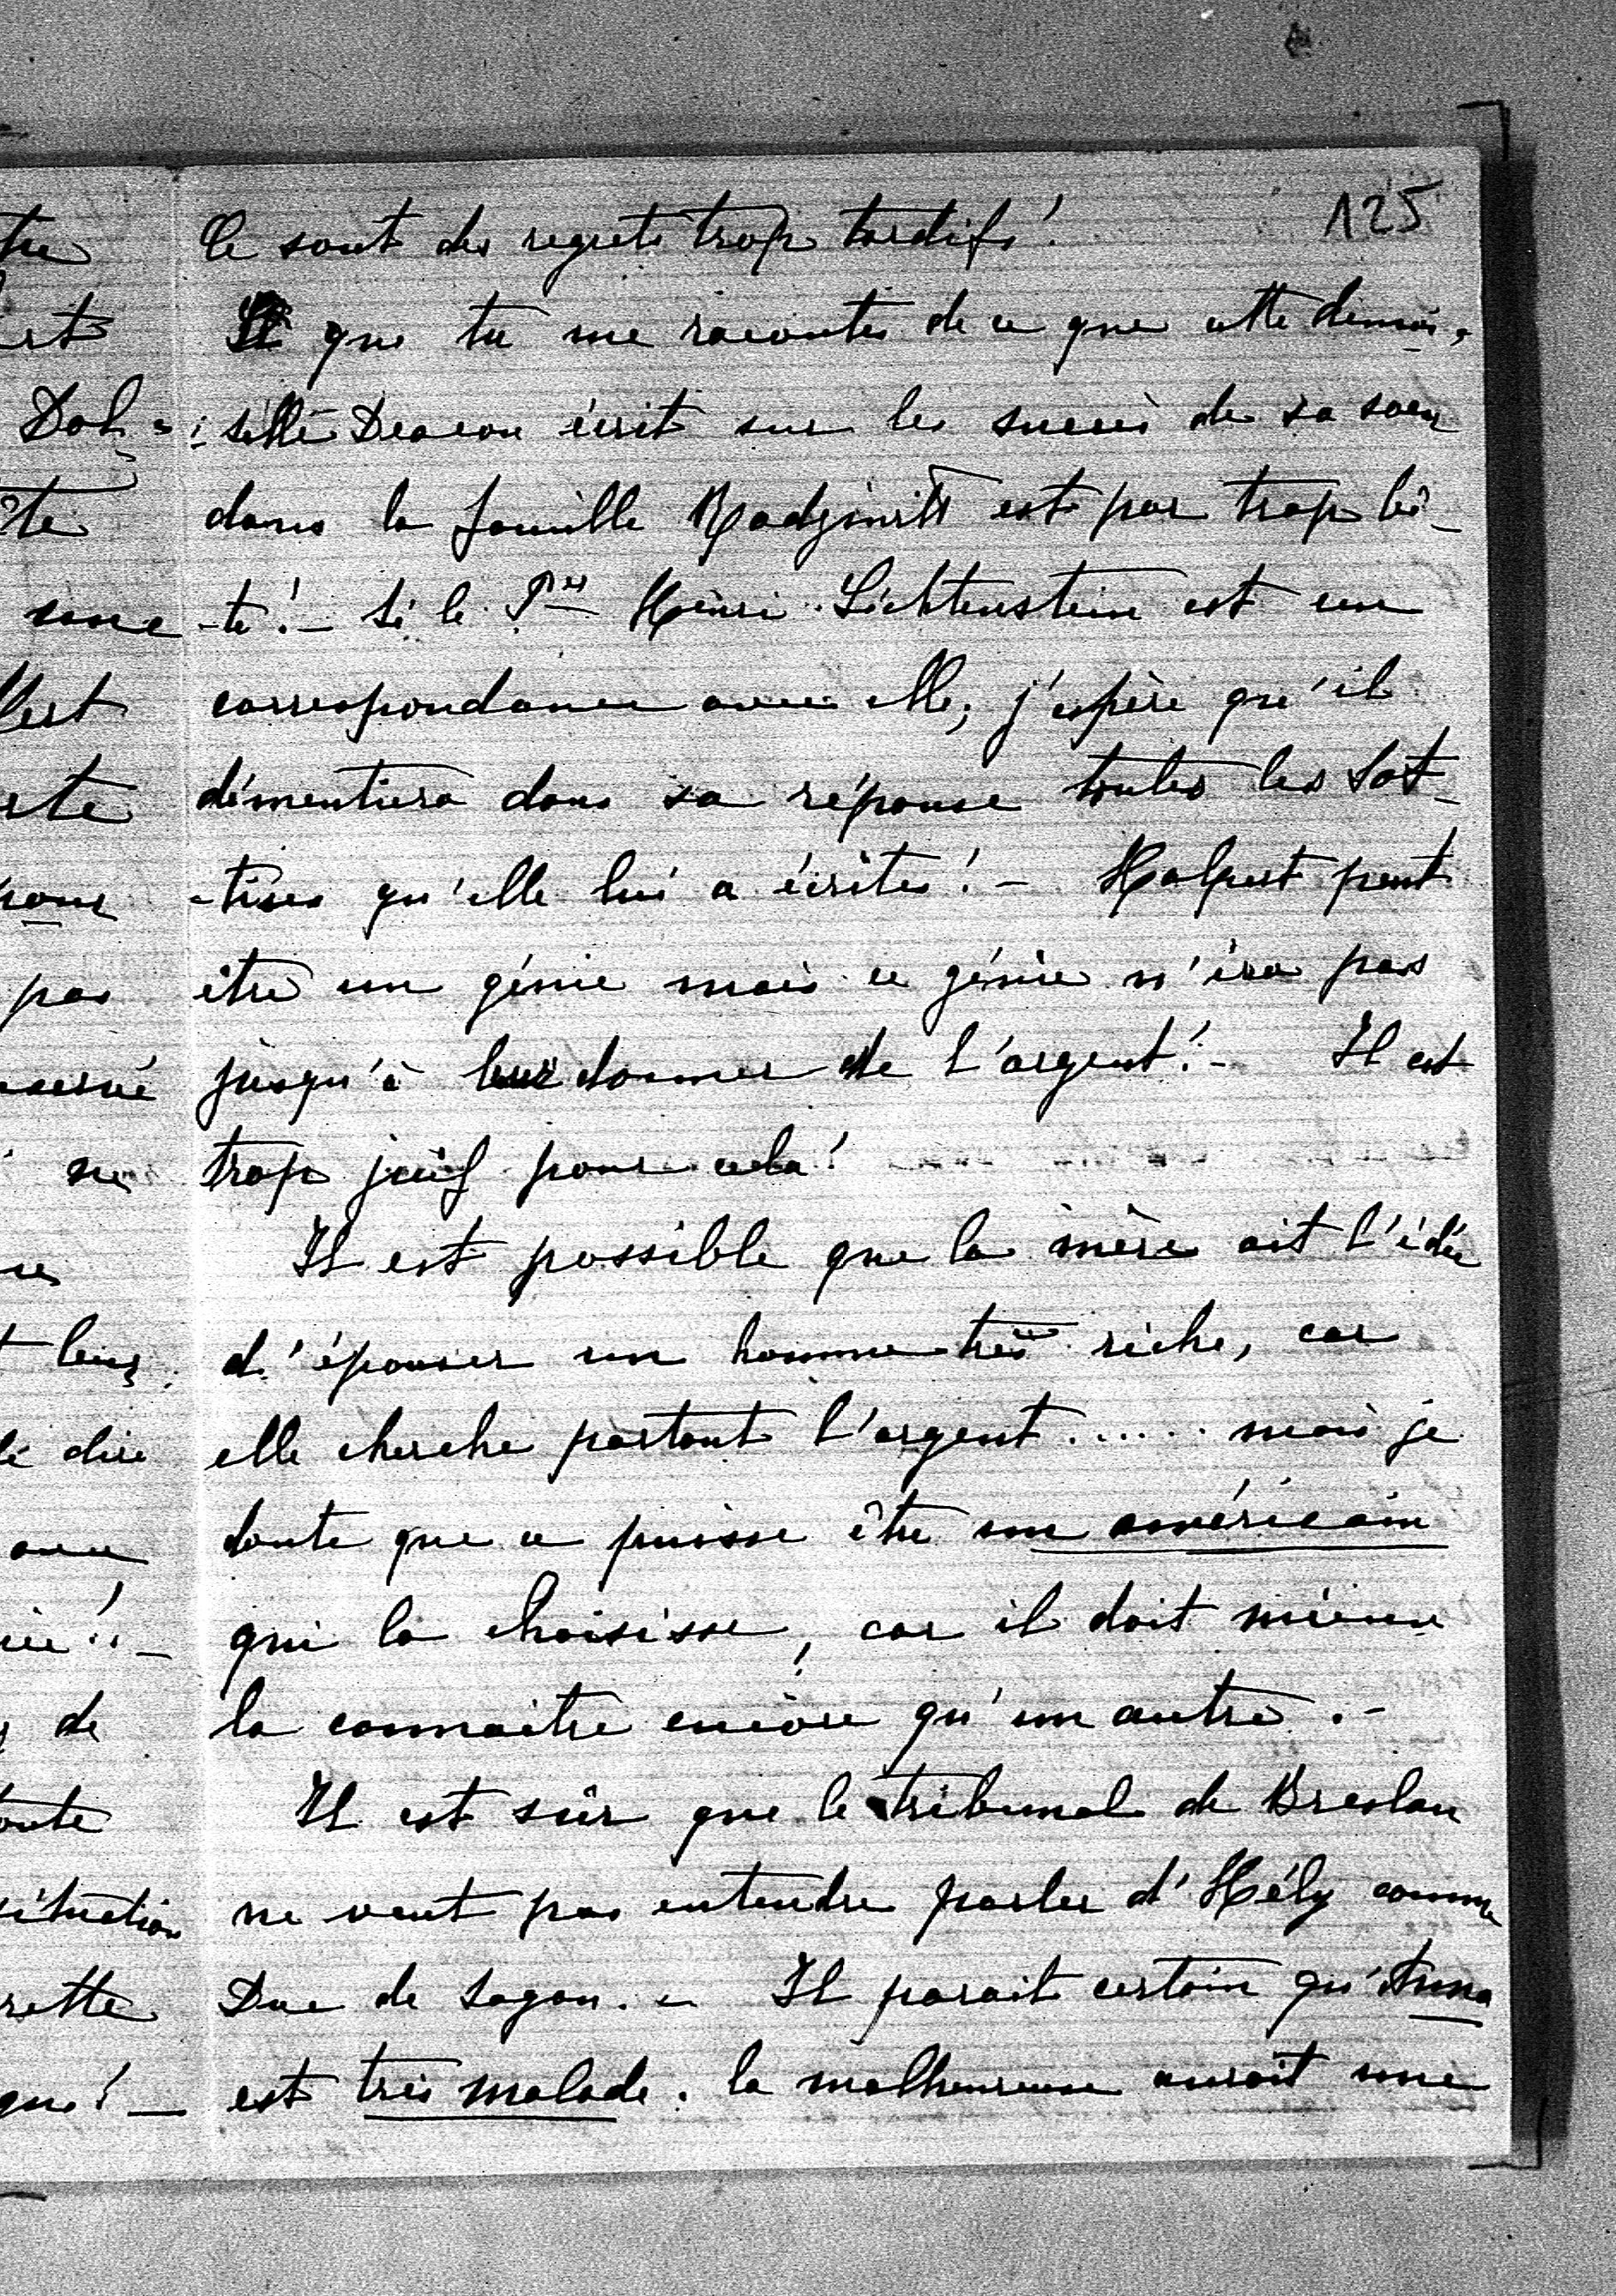 125
Ce sont des regrets trop tardifs!
que tu me racontes de ce que cette demoi=
=selle Deacon écrit sur les succès de sa soeur
dans la famille Radziwill est par trop bê-
-te! – Si le Pce Henri Lichtenstein est en
correspondance avec elle, j'espère qu'il
démentiera dans sa réponse toutes les sot-
-tises qu'elle lui a écrites! – Halpert peut
être un génie mais ce génie n'ira pas
jusqu'à leur donner de l'argent! – Il est
trop juif pour cela!
Il est possible que la mère ait l'idée
d'épouser un homme très riche, car
elle cherche partout l'argent ...... mais je
doute que ce puisse être un américain
qui la choisisse, car il doit mieux
la connaitre encore qu'un autre. –
Il est sûr que le tribunal de Breslau
ne veut pas entendre parler d'Hély comme
Duc de Sagan. – Il parait certain qu'Anna
est très malade. la malheureuse aurait une